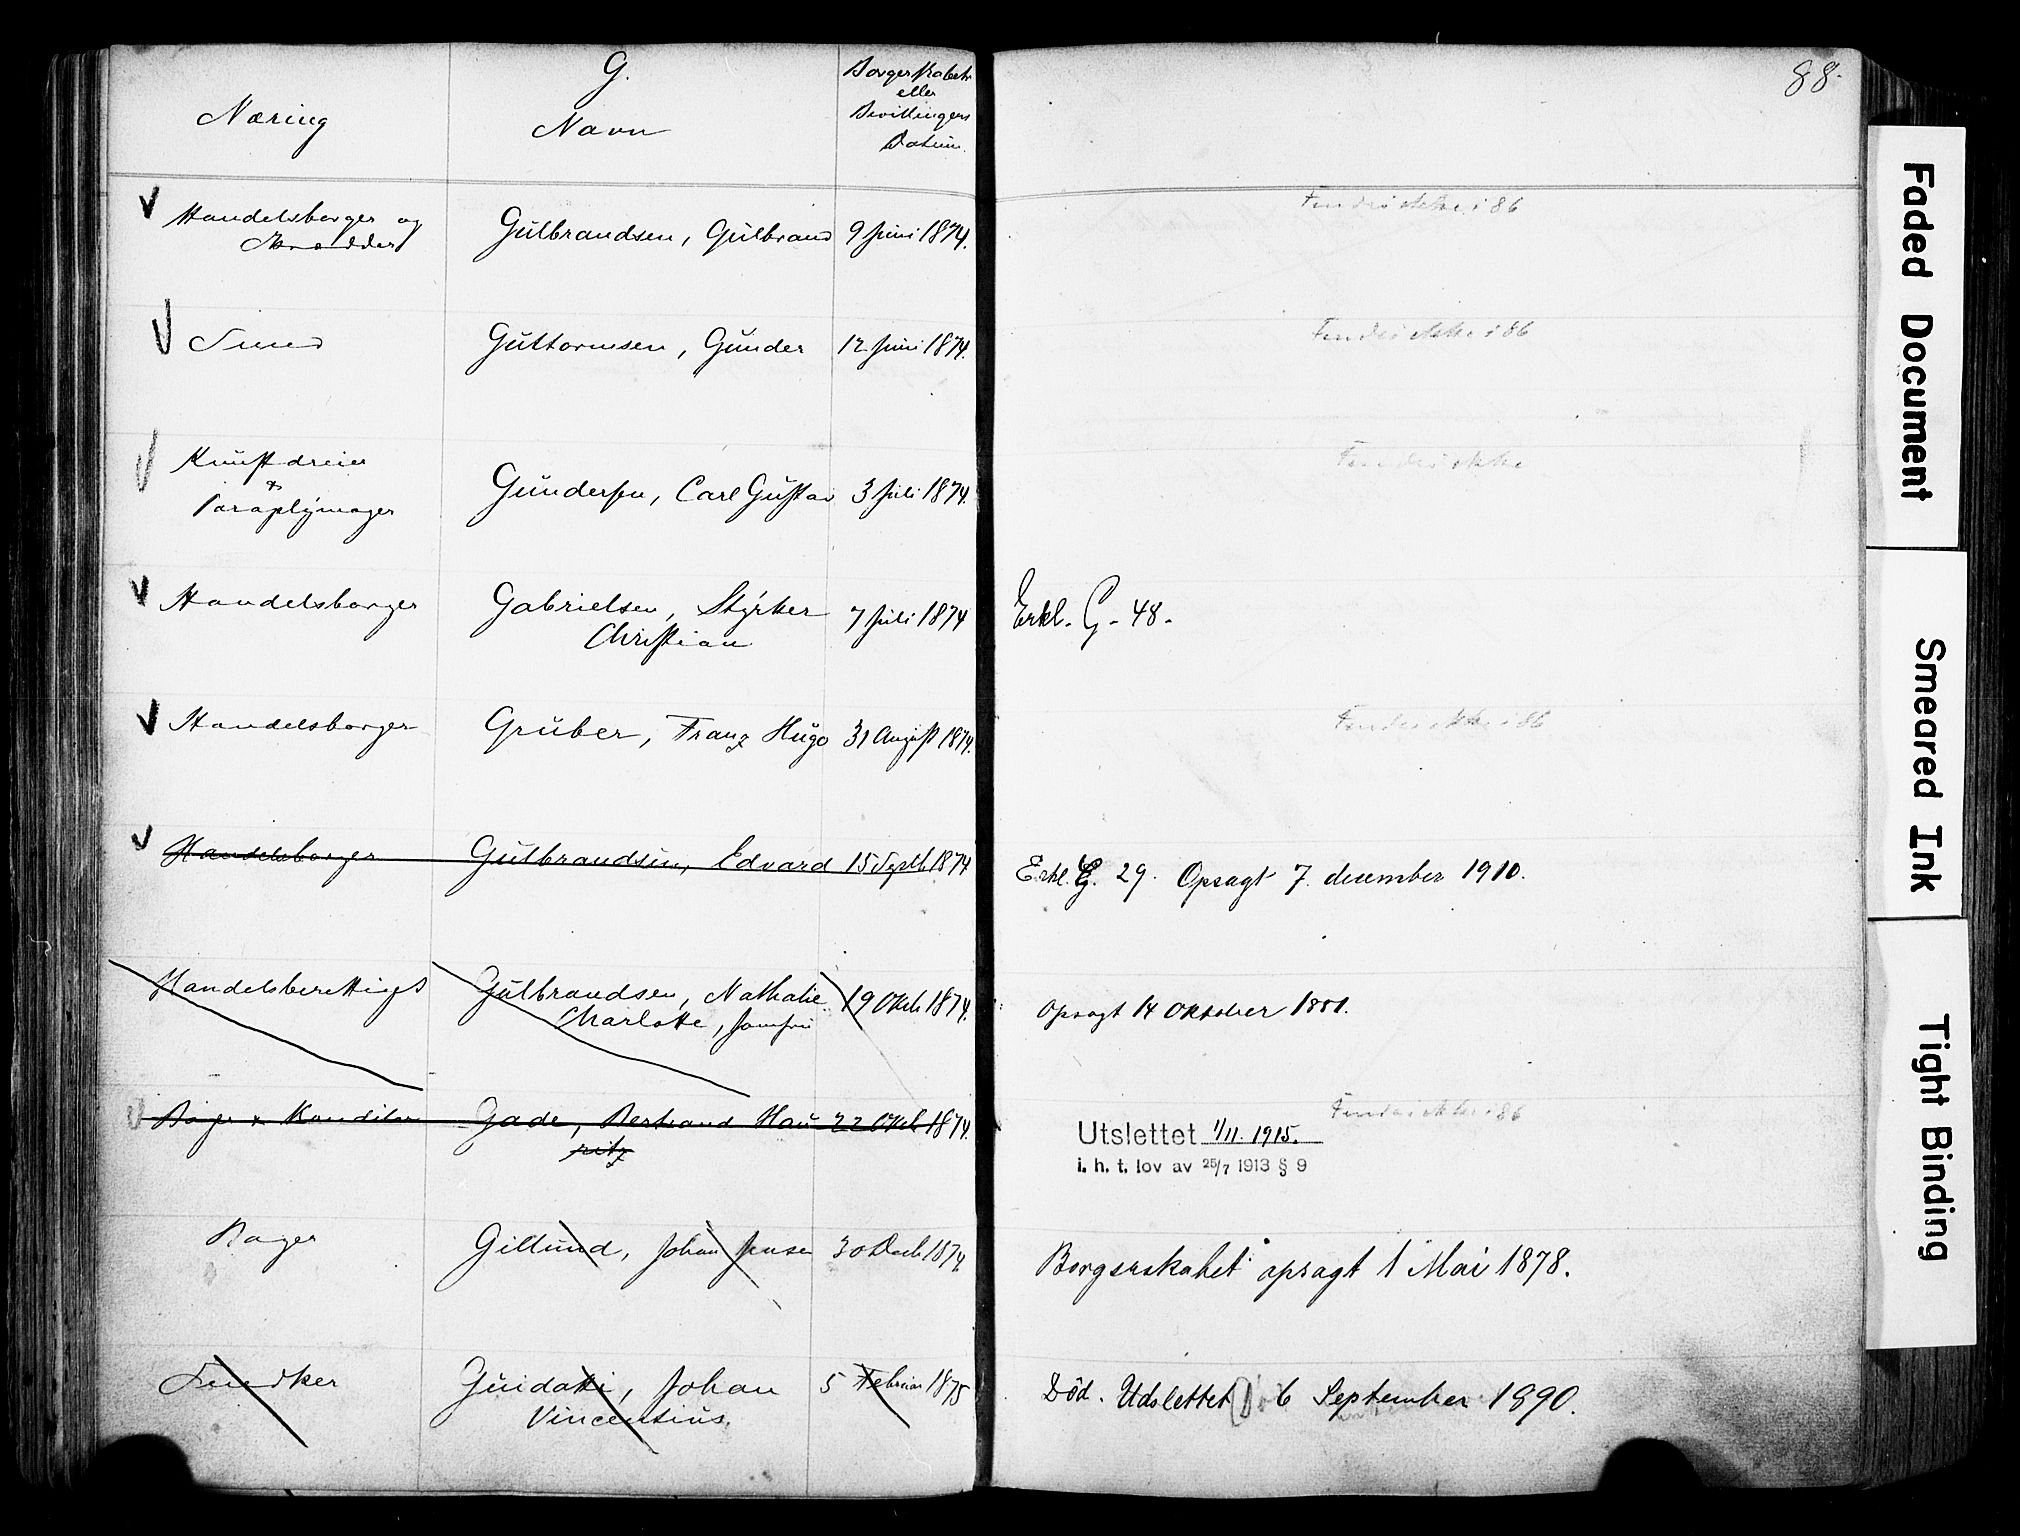 G.
88.
Næring
Navn
Borgerskabets
eller
Bevillingens
Datum.
Handelsborger og
Skrædder
Gulbrandsen, Gulbrand
9 Juni 1874.
Findes ikke i 86
Smed
Guttormsen, Gunder
12 Juni 1874.
Findes ikke i 86
Kunstdreier
&
Paraplymager
Gundersen, Carl Gustav
3 Juli 1874.
Findes ikke
Handelsborger
Gabrielsen, Styrker
Christian
7 Juli 1874
Erkl. G. 48.
Handelsborger
Gruber, Franz Hugo
31 August 1874.
Findes ikke i 86
Handelsborger
Gulbrandsen, Edvard
15 Septb 1874
Erkl. G. 29. Opsagt 7. december 1910.
Handelsberettiget
Gulbrandsen, Nathalie
Charlotte, Jomfru
19 Oktb 1874.
Opsagt 14 Oktober 1881.
Bager & Konditor
Gade, Bertrand Hau
ritz
22 Oktb 1874.
Findes ikke i 86
Utslettet 1/11. 1915.
i. h. t. lov av 25/7 1913 § 9
Bager
Gillund, Johan Jensen
30 Decb 1874
Borgerskabet opsagt 1 Mai 1878.
Snedker
Guidotti, Johan
Vincentius.
5 Februar 1875
Død. Udslettet 6 September 1890.
Faded Document
Smeared Ink
Tight Binding